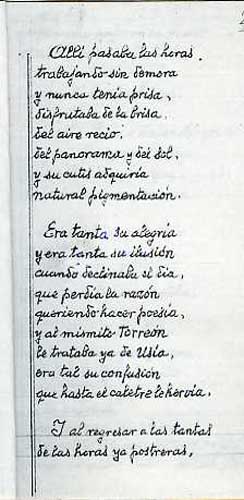 Allí pasaba las horas
trabajando sin demora
y nunca tenía prisa,
disfrutaba de la brisa.
del aire recio.
del panorama y del sol,
y su cutis adquiría
natural pigmentación.
Era tanta su alegría
y era tanta su ilusión
cuando declinaba el día,
que perdía la razón
queriendo hacer poesía,
y al mismito Torreón
le trataba ya de Usía,
era tal su confusión
que hasta el catetre le hervía.
Y al regresar a las tantas
de las horas ya postreras,